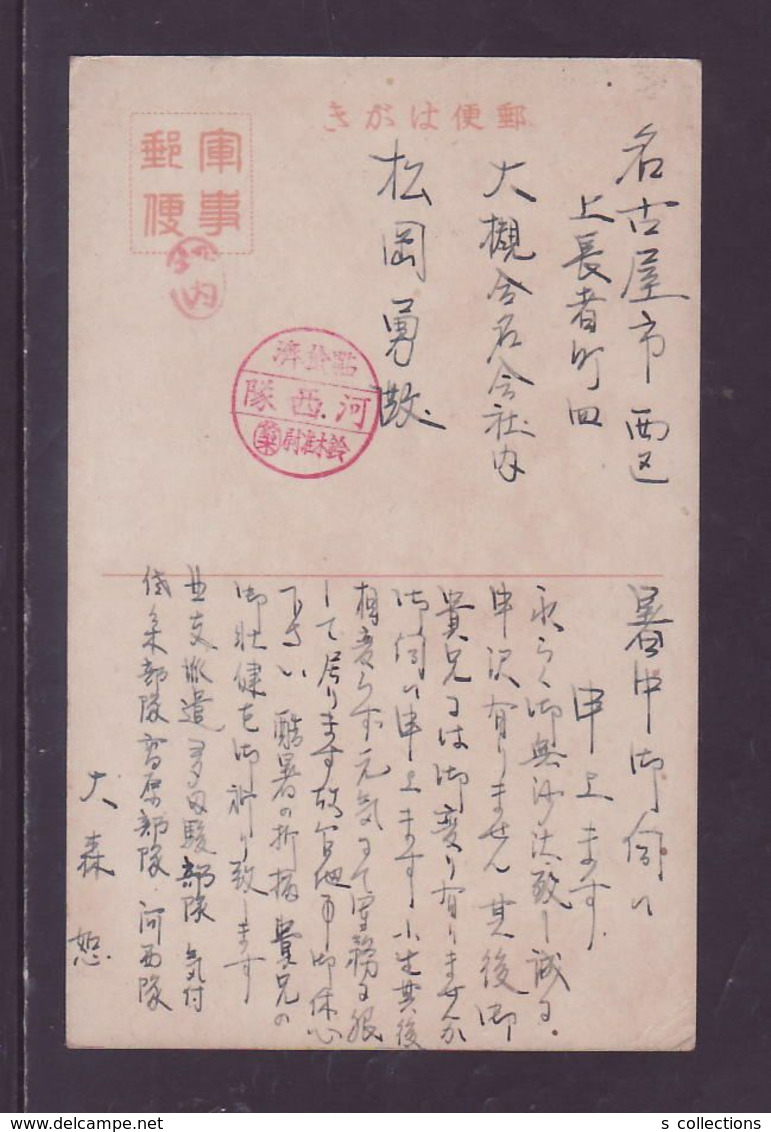 郵便はがき
軍事
郵便
内
點檢濟
河西隊
鈴木准尉
名古屋市西区
上長者町四
大槻合名会社内
松岡勇殿
暑中御伺ひ
申上ます
永らく御無沙汰致し誠に
申訳有りません 其後御
貴兄には御変り有りませんか
御伺ひ申上ます 小生其後
相変らず元気にて軍務に服
して居ります故 御休心
下さい 酷暑の折柄貴兄の
御壮健を御祈り致します
支派遣多田駿部隊気付
部隊 部隊 河西隊
大森 恕
s collections